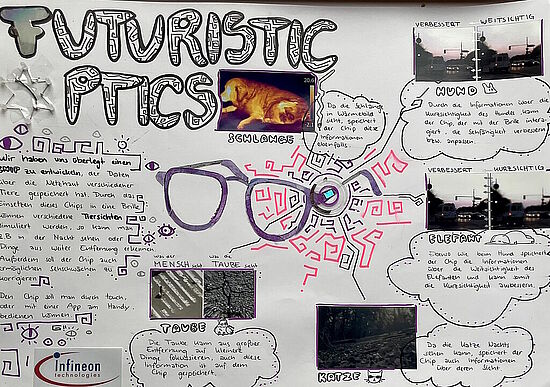 FUTURISTIC
OPTICS
SCHLANGE
Da die Schlange
in Wärmebild
sieht, speichert
der Chip diese
Informationen
ebenfalls.
VERBESSERT WEITSICHTIG
HUND
Durch die Informationen über die
Kurzsichtigkeit des Hundes, kann
der Chip, der mit der Brille intera-
giert, die Sehfähigkeit verbessern
bzw. anpassen.
Wir haben uns überlegt einen
CHIP zu entwickeln, der Daten
über die Netzhaut verschiedener
Tiere gespeichert hat. Durch das
Einsetzen dieses Chips in eine Brille
können verschiedene Tiersichten
simuliert werden, so kann man
z.B in der Nacht sehen oder
Dinge aus weiter Entfernung erkennen.
Außerdem soll der Chip auch
ermöglichen Sehschwächen zu
korrigieren.
Den Chip soll man durch touch,
oder mit einer App am Handy
bedienen können.
infineon
technologies
was der MENSCH sieht was die TAUBE sieht
TAUBE
Die Taube kann aus großer
Entfernung auf kleinere
Dinge fokussieren, auch diese
Information ist auf dem
Chip gespeichert.
VERBESSERT KURZSICHTIG
ELEFANT
Genau wie beim Hund speichert
der Chip die Informationen
über die Weitsichtigkeit des
Elefanten und kann somit
die Kurzsichtigkeit ausbessern.
KATZE
Da die Katze Nachts
sehen kann, speichert der
Chip auch Informationen
über deren Sicht.